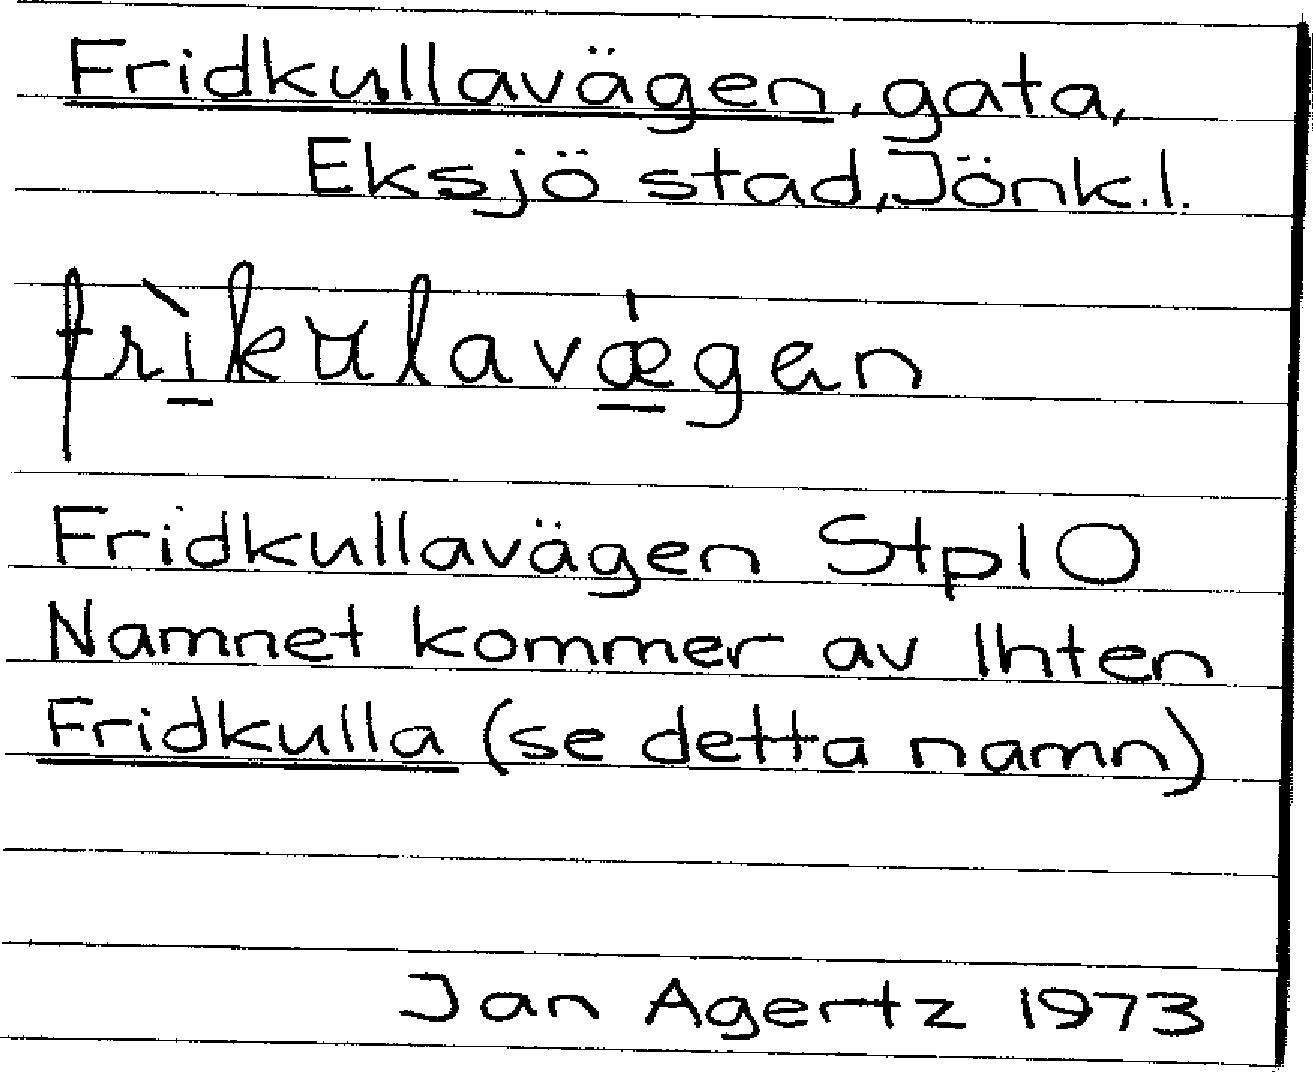 Fridkullavägen, gata,
Eksjö stad, Jönk.l.
frìkulavǽgen
Fridkullavägen Stpl O
Namnet kommer av lhten
Fridkulla (se detta namn)
Jan Agertz 1973